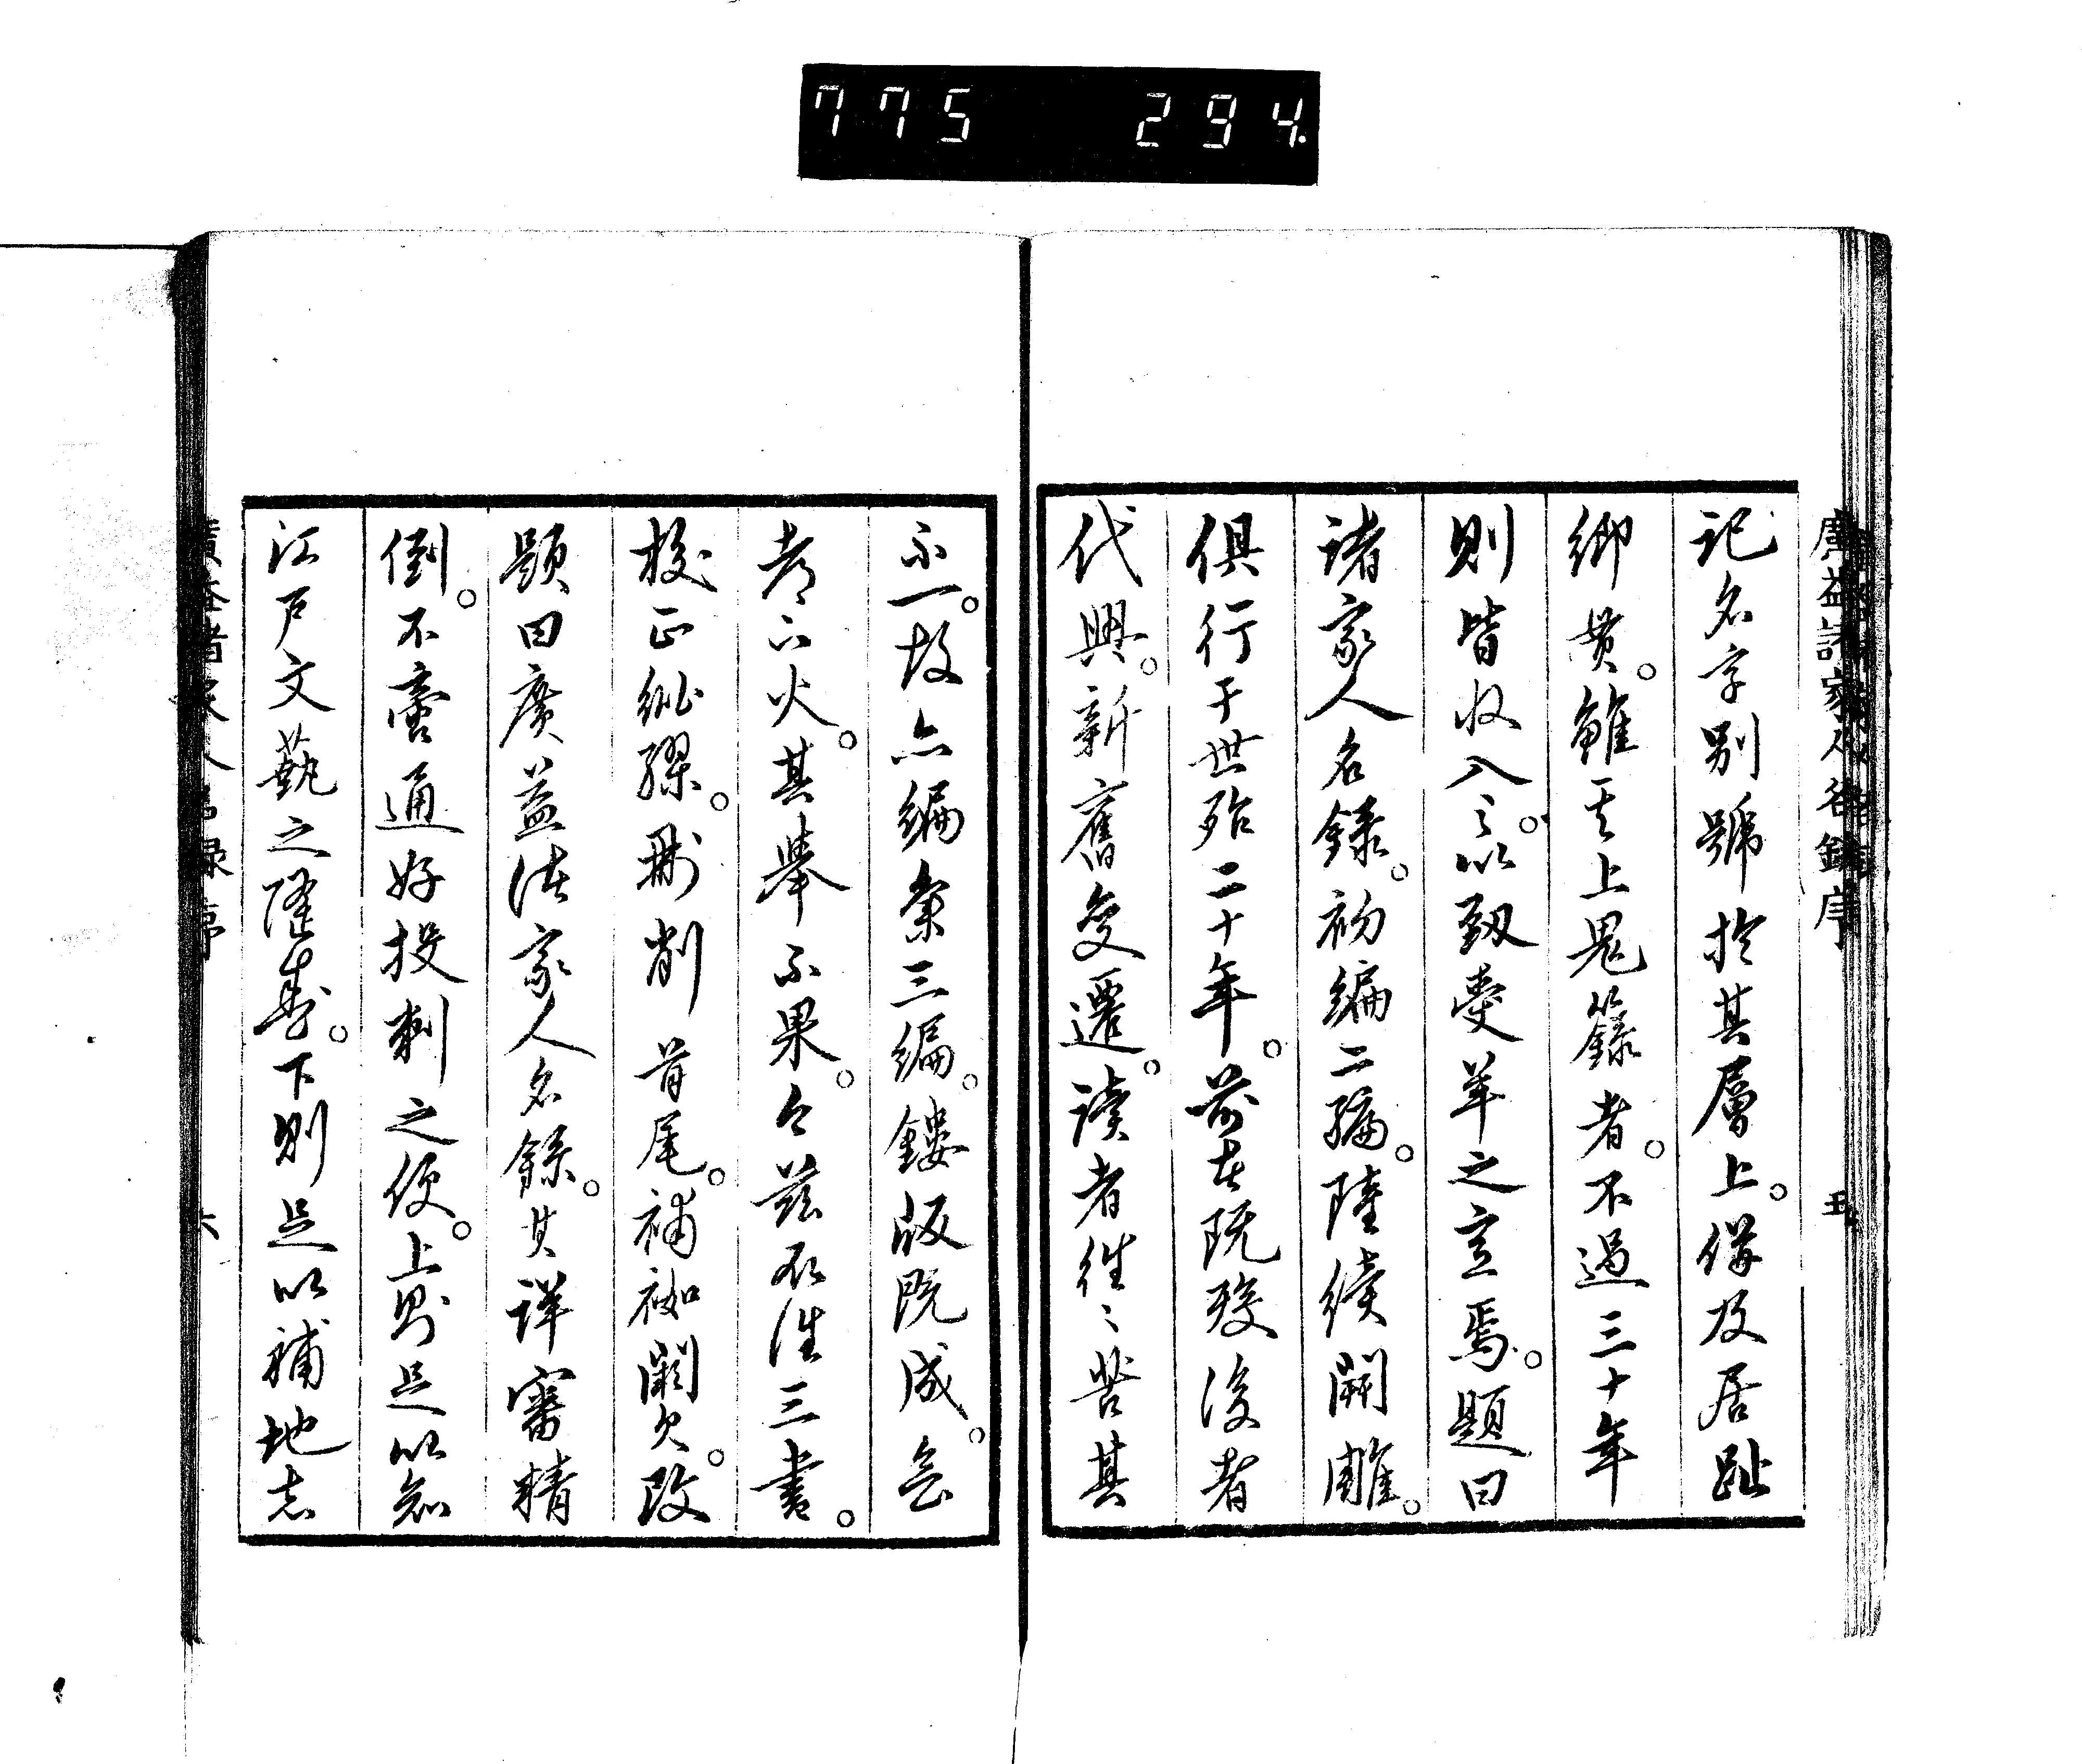 775 294
廣益諸家人名録序
五
記名字別號於其層上。併及居趾
鄉貫。雖其上鬼籙者。不過三十年
則皆收入之。以致愛羊之意焉。題曰
諸家人名錄。初編二編。陸續開雕。
俱行于世殆二十年。前者既歿後者
代興。新舊變遷。讀者往〻苦其
不一。故亦編集三編。鏤版既成。
火。其舉不果。今茲三書。
校正紕繆。刪削首尾。補綴闕欠。改
題曰廣益諸家人名錄。其詳審精
倒。不啻通好投刺之便。上則足以知
江戶文藝之隆盛。下則足以補地志
廣益諸家人名録序
六